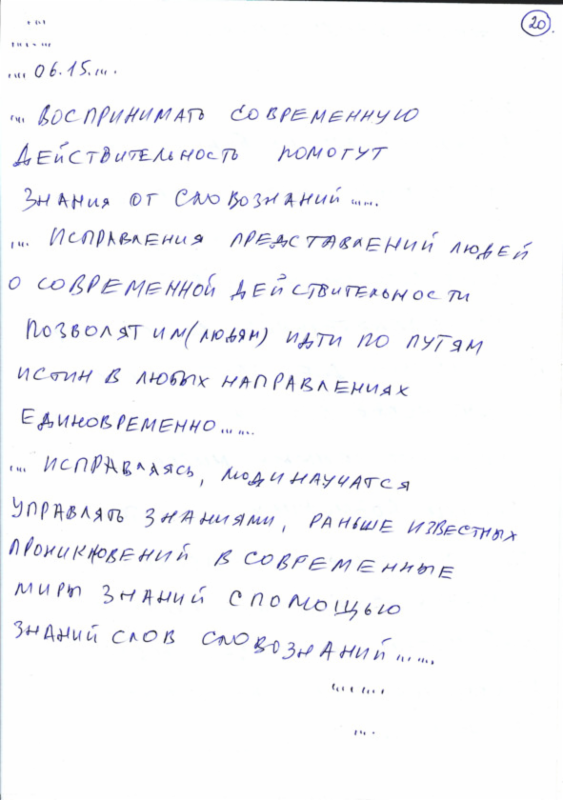 20.
...
.... - ...
.... 06.15. ....
... ВОСПРИНИМАТЬ СОВРЕМЕННУЮ
ДЕЙСТВИТЕЛЬНОСТЬ ПОМОГУТ
ЗНАНИЯ ОТ СЛОВОЗНАНИЙ .....
... ИСПРАВЛЕНИЯ ПРЕДСТАВЛЕНИЙ ЛЮДЕЙ
О СОВРЕМЕННОЙ ДЕЙСТВИТЕЛЬНОСТИ
ПОЗВОЛЯТ ИМ (ЛЮДЯМ) ИДТИ ПО ПУТЯМ
ИСТИН В ЛЮБЫХ НАПРАВЛЕНИЯХ
ЕДИНОВРЕМЕННО ......
... ИСПРАВЛЯЯСЬ, ЛЮДИ НАУЧАТСЯ
УПРАВЛЯТЬ ЗНАНИЯМИ, РАНЬШЕ ИЗВЕСТНЫХ
ПРОНИКНОВЕНИЙ В СОВРЕМЕННЫЕ
МИРЫ ЗНАНИЙ С ПОМОЩЬЮ
ЗНАНИЙ СЛОВ СЛОВОЗНАНИЙ ......
..... ....
....